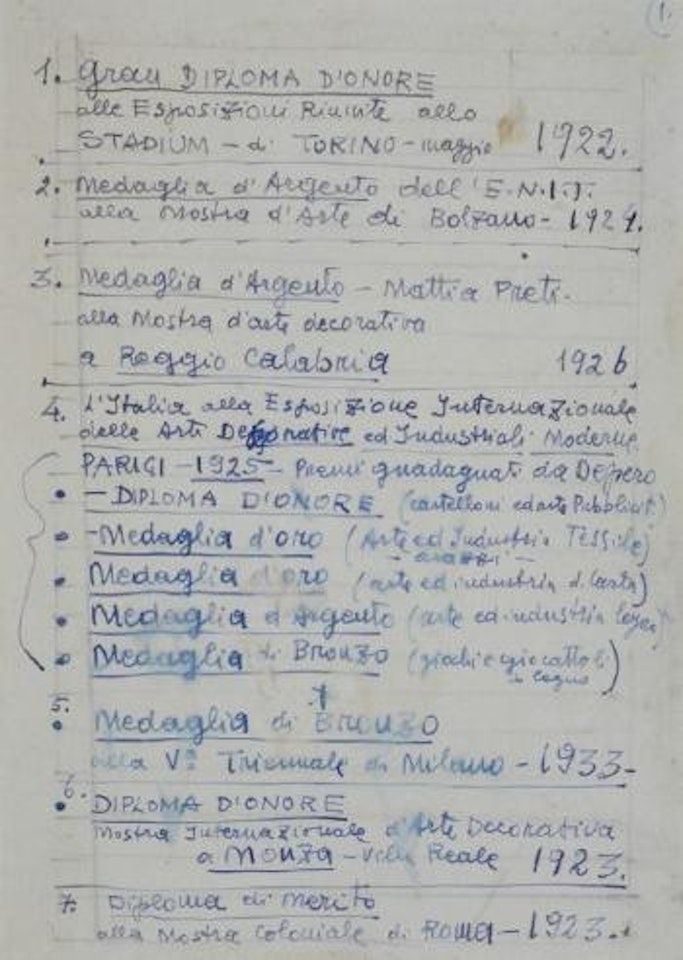 1.
1. Gran DIPLOMA D'ONORE
alle Esposizioni Riunite allo
STADIUM - di TORINO - maggio 1922.
2. Medaglia d'Argento dell'E.N.I.T.
alla Mostra d'Arte di Bolzano - 1924.
3. Medaglia d'Argento - Mattia Preti -
alla Mostra d'arte decorativa
a Reggio Calabria 1926
4. L'Italia alla Esposizione Internazionale
delle Arti Decorative ed Industriali Moderne
PARIGI - 1925 - Premi guadagnati da Depero
• - DIPLOMA D'ONORE (cartelloni ed arte Pubblicit.)
• - Medaglia d'oro (Arte ed Industria Tessile)
- arazzi -
• Medaglia d'oro (arte ed industria d. Carta)
• Medaglia d'Argento (arte ed industria legno)
• Medaglia di Bronzo (giochi e giocattoli
in legno)
5.
• Medaglia di Bronzo
alla Va Triennale di Milano - 1933 -
6.
• DIPLOMA D'ONORE
Mostra Internazionale d'Arte Decorativa
a MONZA - Villa Reale 1923.
7. Diploma di merito
alla Mostra Coloniale di ROMA - 1923.